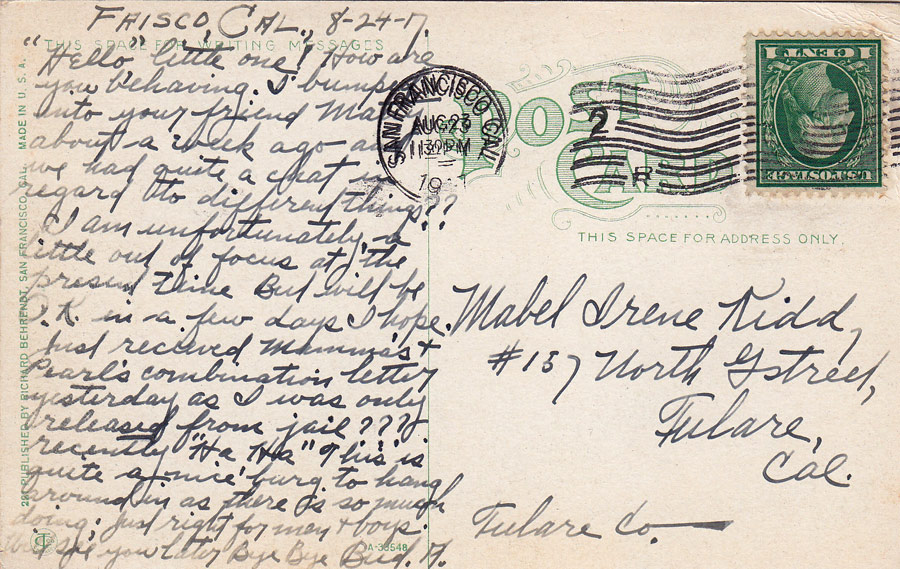 FRISCO, CAL., 8-24-17
THIS SPACE FOR WRITING MESSAGES
"Hello" little one! How are
you behaving. I bumped
into your friend
about a week ago and
we had quite a chat in
regard to different things??
I am unfortunately a
little out of focus at the
present time But will be
O.K. in a few days I hope.
Just recieved Mamma's +
Pearl's combination letter
yesterday as I was only
released from jail???
recently "Ha Ha" This is
quite a nice burg to hang
around in as there is so much
doing, just right for men + boys.
see you later Bye Bye Bud.
291 PUBLISHED BY RICHARD BEHRENDT, SAN FRANCISCO, CAL. MADE IN U. S. A.
A-33548
POST
CARD
THIS SPACE FOR ADDRESS ONLY.
SAN FRANCISCO, CAL.
AUG 23
1130 PM
2
R
1 CENT 1
U.S. POSTAGE
Mabel Irene Kidd,
#137 North G street,
Tulare,
Cal.
Tulare Co.